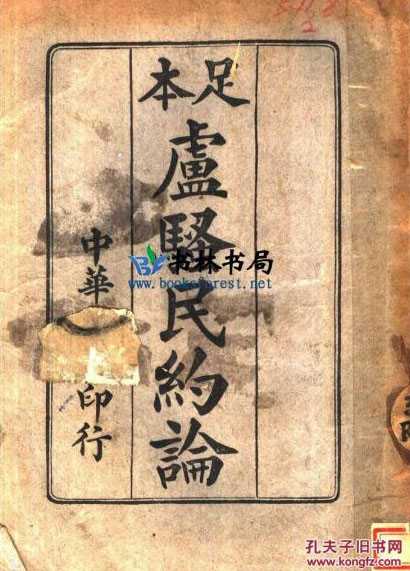 足本
盧騷民約論
中華
印行
书林书局
www.booksforest.net
孔夫子旧书网
www.kongfz.com